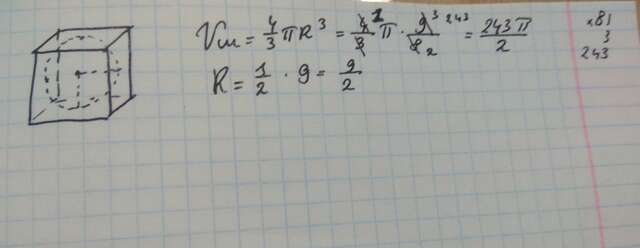 Vш = 4/3 πR³ = 4̶ 1/3̶ π · 9̶³ 243/8̶ 2 = 243π/2
R = 1/2 · 9 = 9/2
×81
3
243